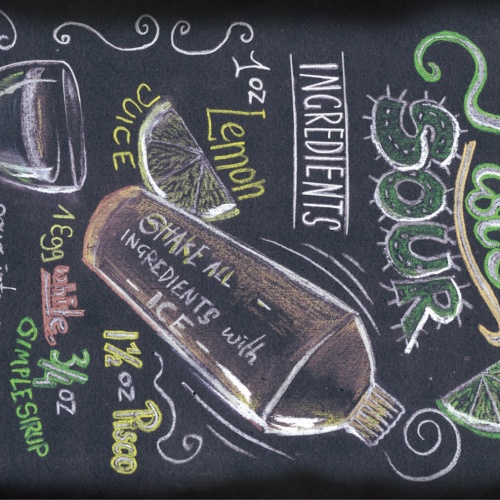 SOUR
INGREDIENTS
1 oz Lemon
JUICE
SHAKE ALL
INGREDIENTS with
ICE
1½ oz Pisco
¾ oz
SIMPLE SIRUP
1 Egg white